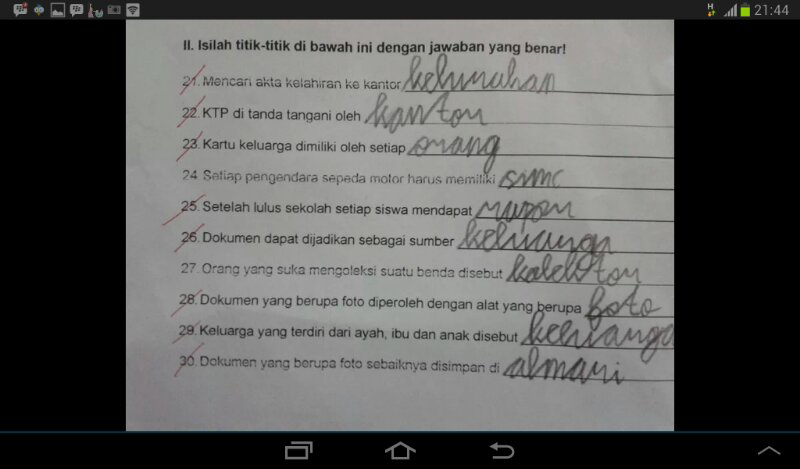 21:44
II. Isilah titik-titik di bawah ini dengan jawaban yang benar!
21. Mencari akta kelahiran ke kantor kelurahan
22. KTP di tanda tangani oleh kantor
23. Kartu keluarga dimiliki oleh setiap orang
24 Setiap pengendara sepeda motor harus memiliki simc
25. Setelah lulus sekolah setiap siswa mendapat
26. Dokumen dapat dijadikan sebagai sumber
27. Orang yang suka mengoleksi suatu benda disebut
28. Dokumen yang berupa foto diperoleh dengan alat yang berupa foto
29. Keluarga yang terdiri dari ayah, ibu dan anak disebut
30. Dokumen yang berupa foto sebaiknya disimpan di almari